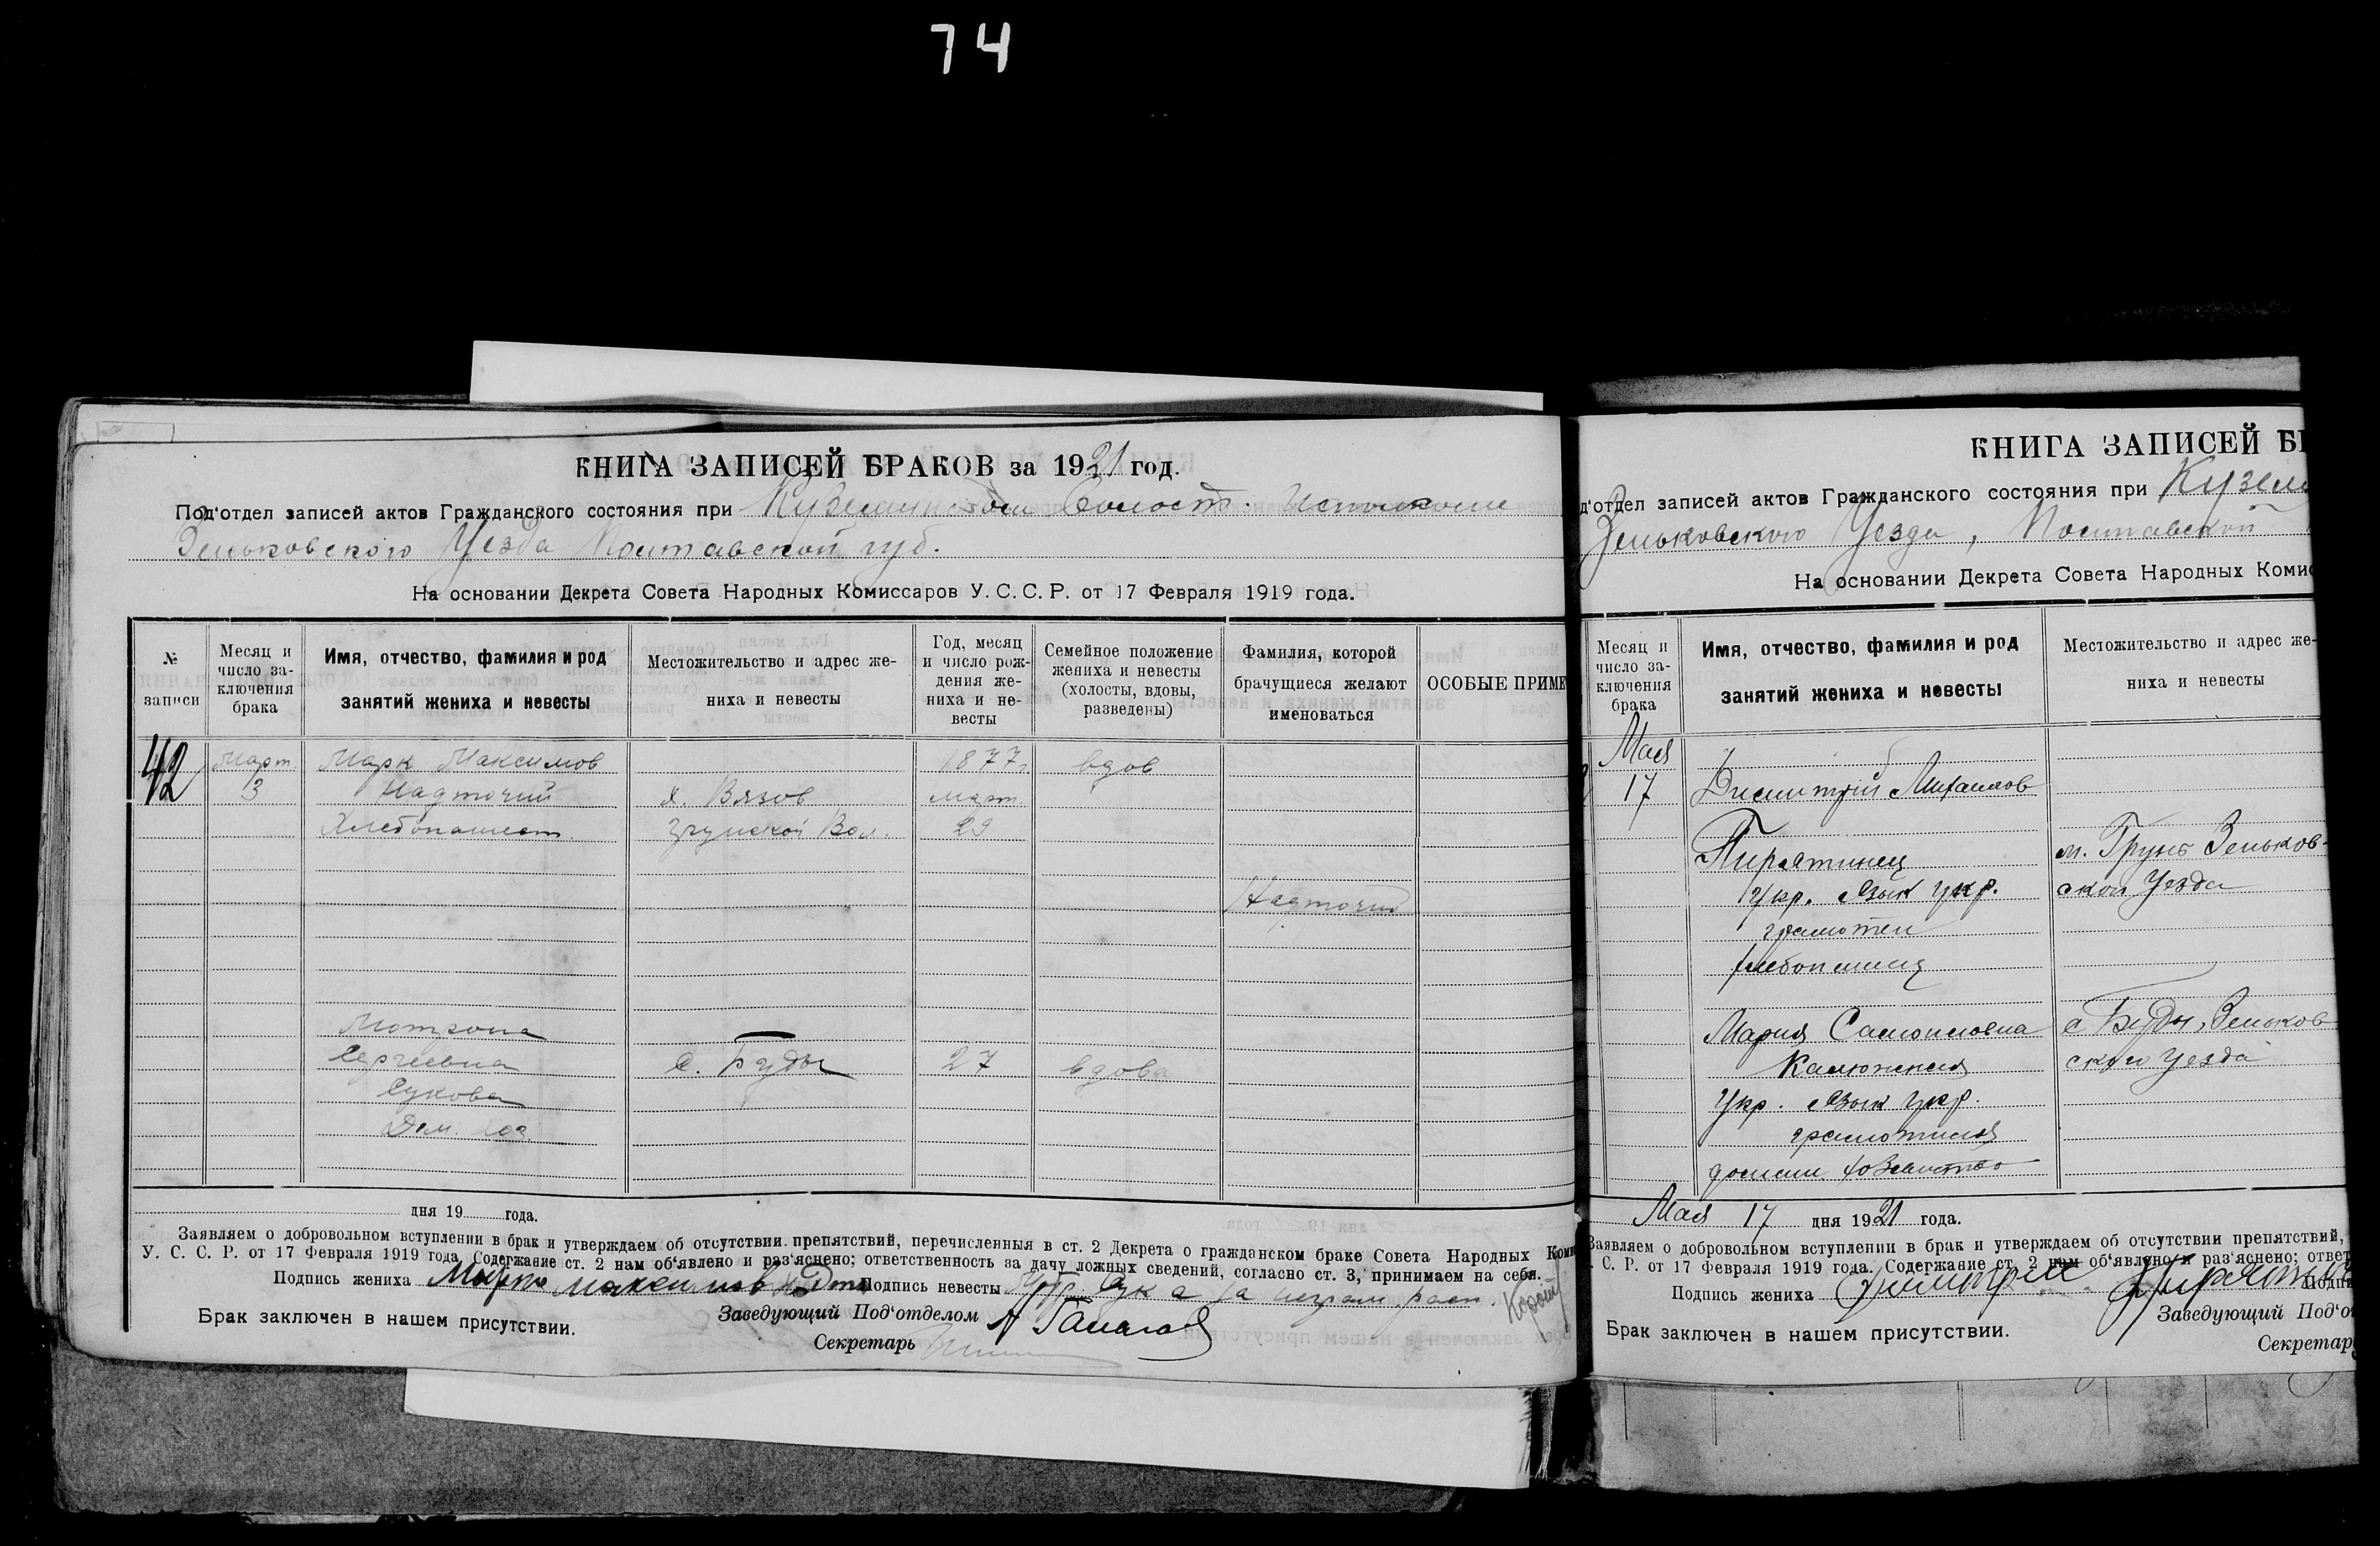 74
КНИГА ЗАПИСЕЙ БРАКОВ за 1921 год.
Под‘отдел записей актов Гражданского состояния при Волост.
Зеньковского Уезда Полтавской губ.
На основании Декрета Совета Народных Комиссаров У. С. С. Р. от 17 Февраля 1919 года.
№ записи
Месяц и число заключения брака
Имя, отчество, фамилия и род занятий жениха и невесты
Местожительство и адрес жениха и невесты
Год, месяц и число рождения жениха и невесты
Семейное положение жениха и невесты (холосты, вдовы, разведены)
Фамилия, которой брачущиеся желают именоваться
ОСОБЫЕ ПРИМЕ
42 Март. Марк Максимов 1877 г. вдов
3 Надточий х. Вязов март
Хлебопашест. Вол. 29
Надточий
Мотрона
Сергеевна с. Буды 27 вдова
Сукова
Дом. хоз.
дня 19 года.
Заявляем о добровольном вступлении в брак и утверждаем об отсутствии препятствий, перечисленныя в ст. 2 Декрета о гражданском браке Совета Народных Коми
У. С. С. Р. от 17 Февраля 1919 года. Содержание ст. 2 нам об‘явлено и раз‘яснено; ответственность за дачу ложных сведений, согласно ст. 3, принимаем на себя.
Подпись жениха Подпись невесты
Брак заключен в нашем присутствии.
Заведующий Под‘отделом
Секретарь
КНИГА ЗАПИСЕЙ Б
д‘отдел записей актов Гражданского состояния при Кузем
Зеньковского Уезда, Полтавской
На основании Декрета Совета Народных Комис
Месяц и число заключения брака
Имя, отчество, фамилия и род занятий жениха и невесты
Местожительство и адрес жениха и невесты
Мая
17 Димитрий Михаилов
Пирятинец м. Грунь Зеньков-
Укр. Язык укр. ского Уезда
грамотен
хлебопашец
Мария Самоиловна с Буды, Зеньков-
Калюжная ского Уезда
Укр. Язык укр.
грамотная
домаш. хозяйство
Мая 17 дня 1921 года.
Заявляем о добровольном вступлении в брак и утверждаем об отсутствии препятствий,
С. Р. от 17 Февраля 1919 года. Содержание ст. 2 нам об‘явлено и раз‘яснено; ответ
Подпись жениха Подпи
Брак заключен в нашем присутствии.
Заведующий Под‘о
Секретар